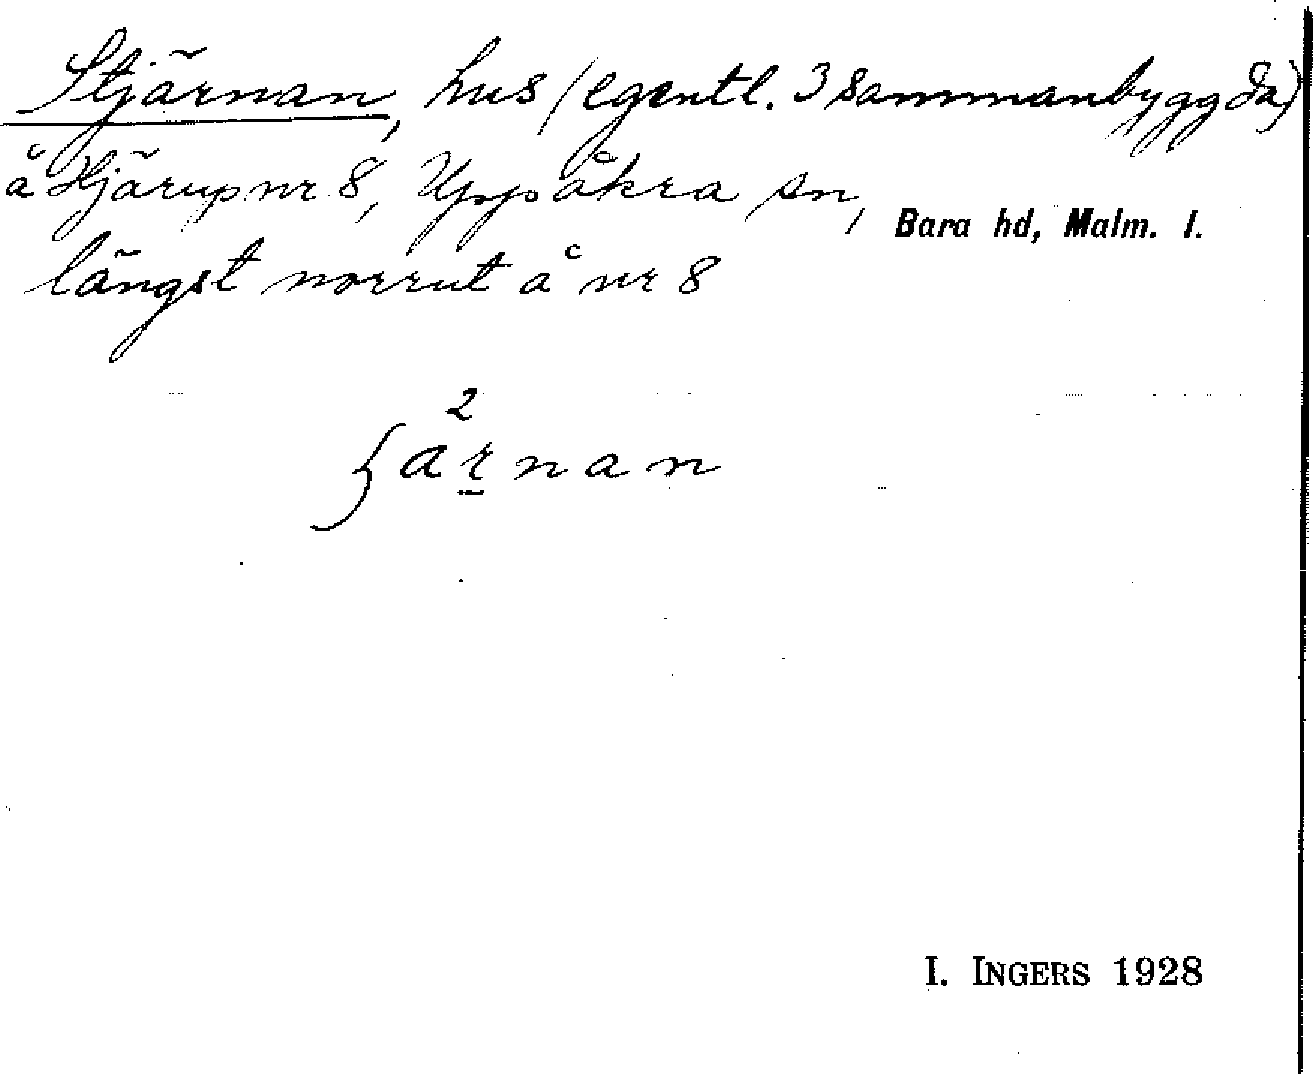 Stjärnan, hus (egentl. 3 sammanbyggda)
å Hjärup nr 8, Uppåkra sn, Bara hd, Malm. l.
längst norrut å nr 8
2
ʃarnan
I. INGERS 1928